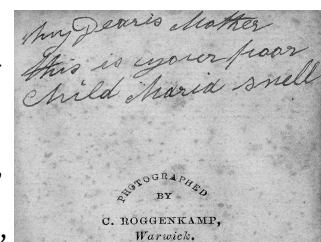 My Dearis Mother
this is your poor
Child Maria Snell
PHOTOGRAPHED
BY
C. ROGGENKAMP,
Warwick.